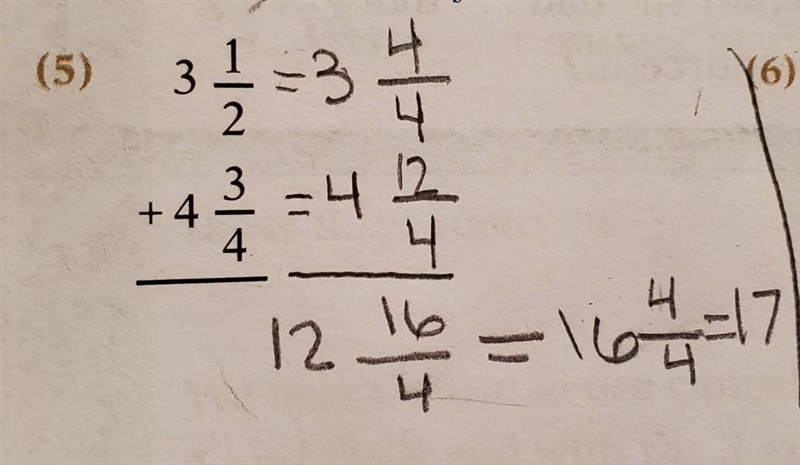 (5) 3 1/2 = 3 4/4 (6)
+ 4 3/4 = 4 12/4
12 16/4 = 16 4/4 = 17